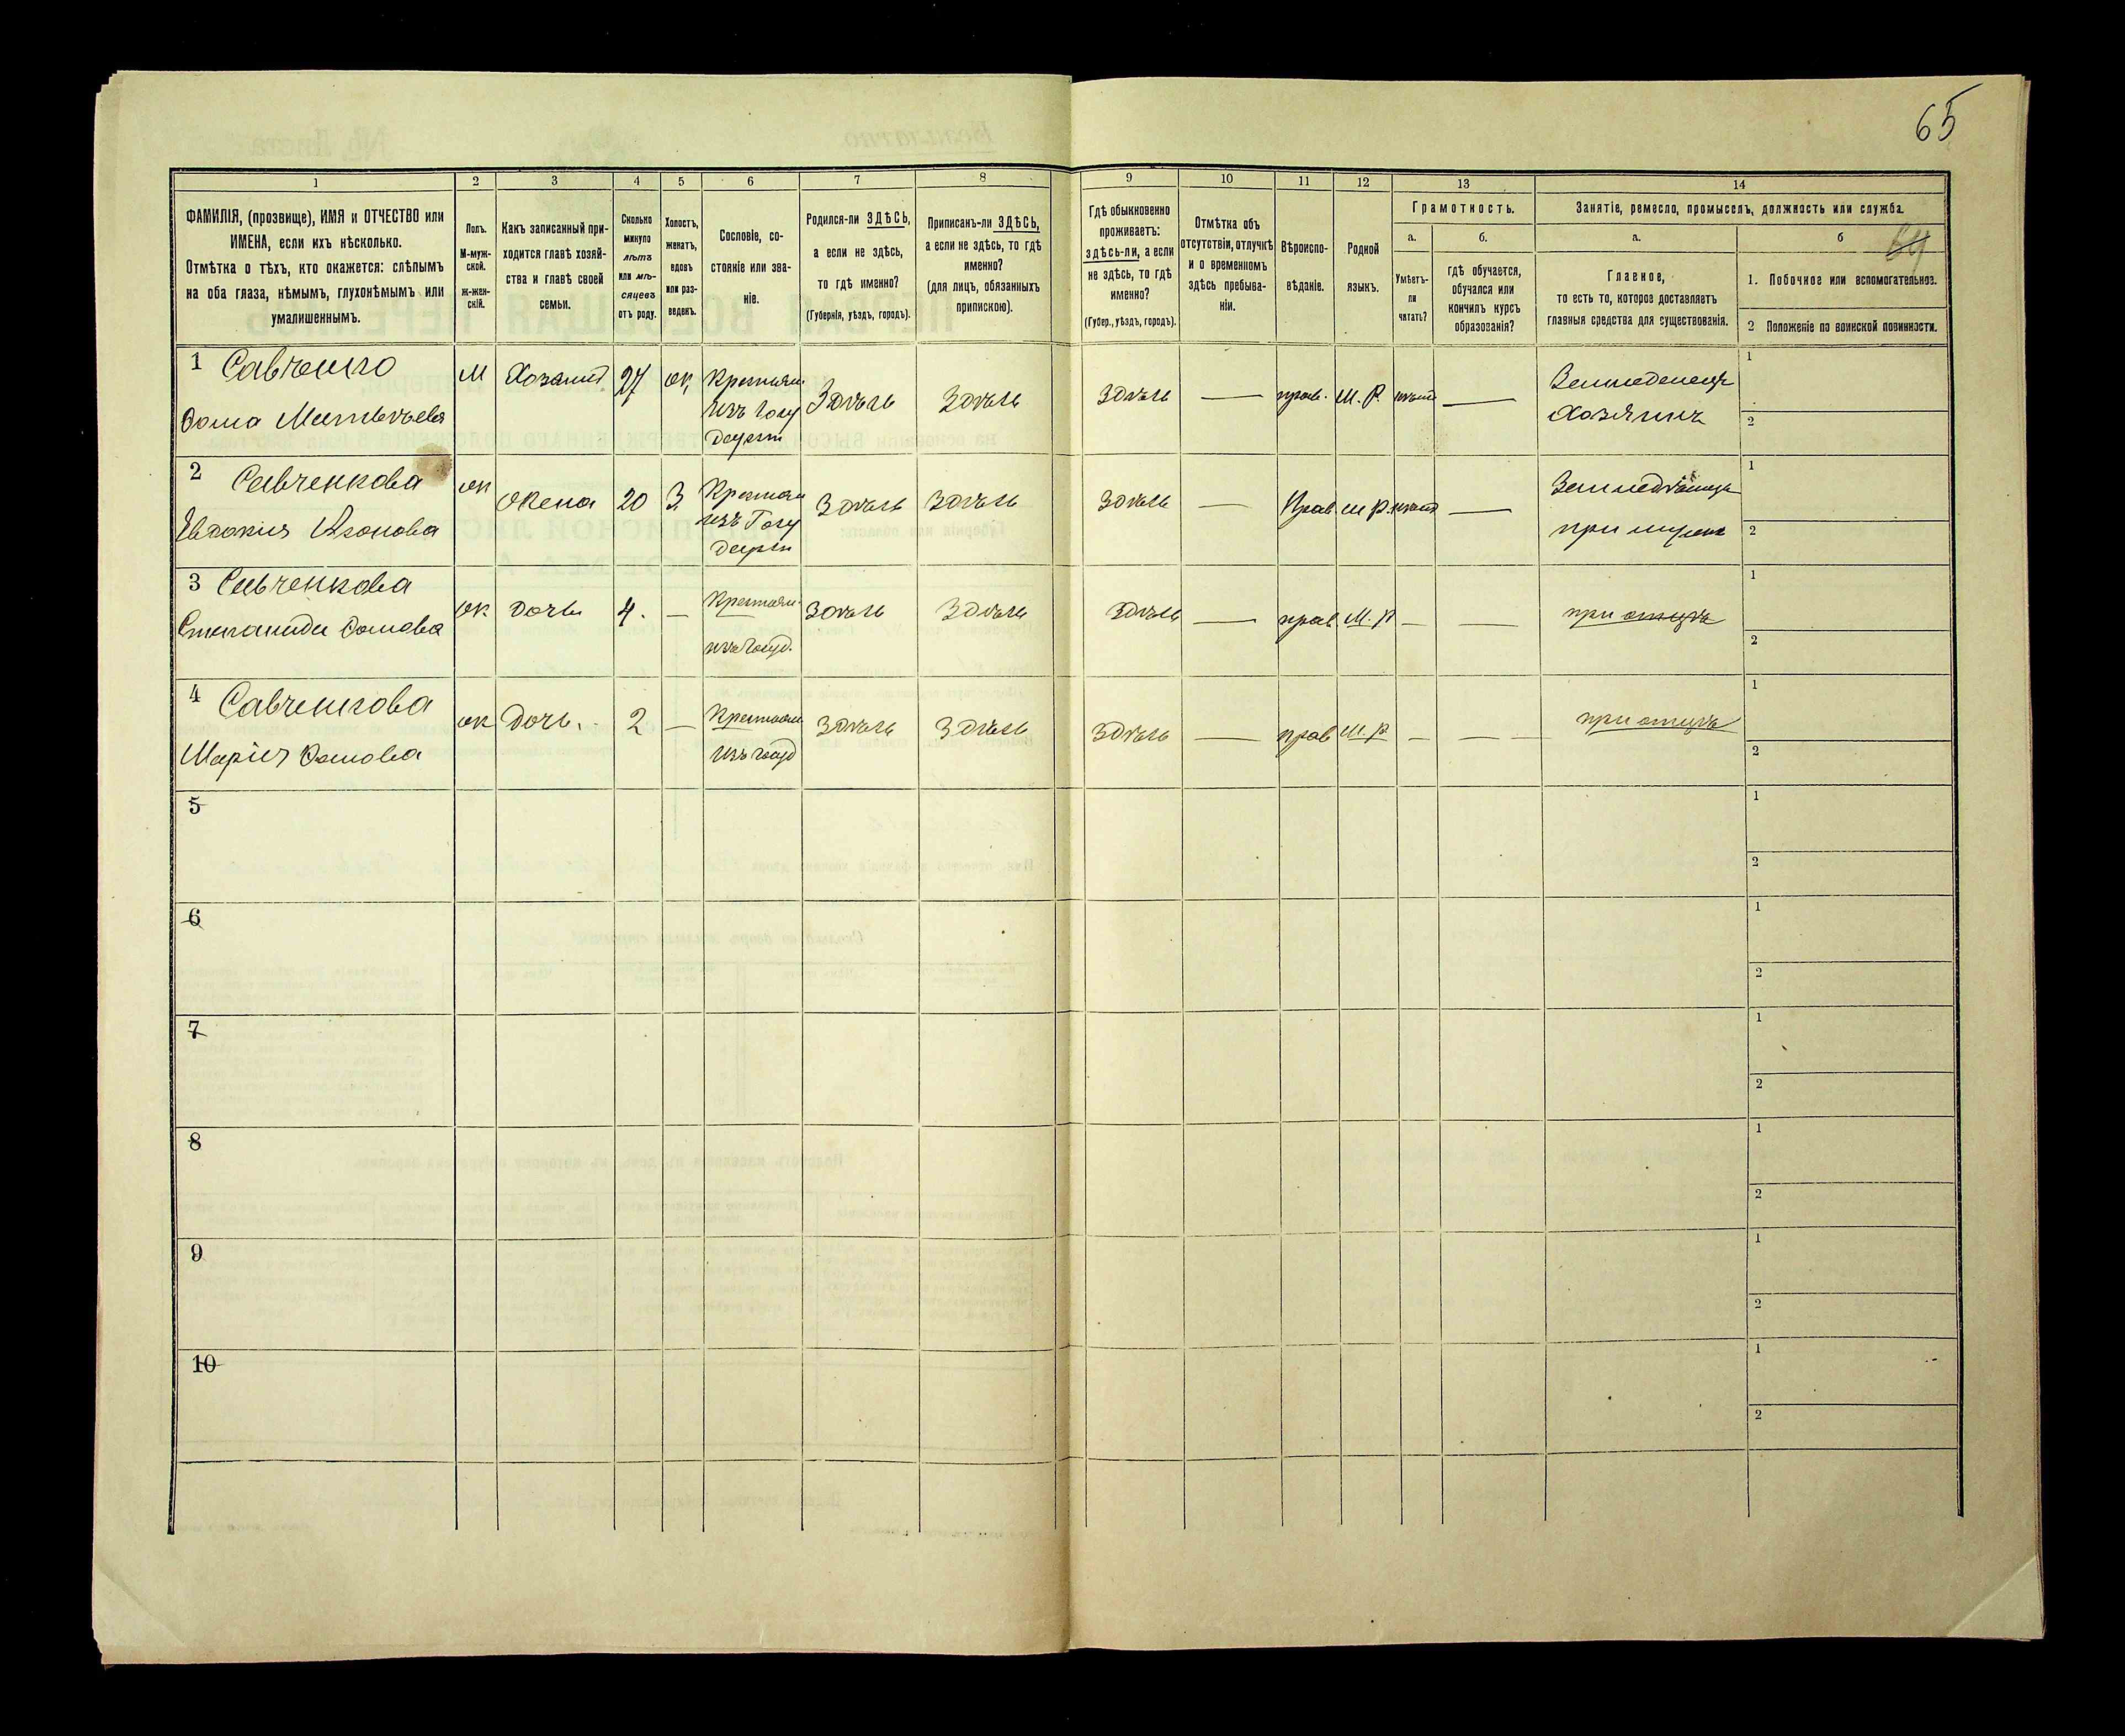 65
1 2 3 4 5 6 7 8 9 10 11 12 13 14
ФАМИЛІЯ, (прозвище), ИМЯ и ОТЧЕСТВО или
ИМЕНА, если ихъ нѣсколько.
Отмѣтка о тѣхъ, кто окажется: слѣпымъ
на оба глаза, нѣмымъ, глухонѣмымъ или
умалишеннымъ.
Полъ.
М-муж-
ской.
ж-жен-
скій.
Какъ записанный при-
ходится главѣ хозяй-
ства и главѣ своей
семьи.
Сколько
минуло
лѣтъ
или мѣ-
сяцевъ
отъ роду.
Холостъ,
женатъ,
вдовъ
или раз-
веденъ.
Сословіе, со-
стояніе или зва-
ніе.
Родился-ли ЗДѢСЬ,
а если не здѣсь,
то гдѣ именно?
(Губернія, уѣздъ, городъ).
Приписанъ-ли ЗДѢСЬ,
а если не здѣсь, то гдѣ
именно?
(для лицъ, обязанныхъ
припискою).
Гдѣ обыкновенно
проживаетъ:
здѣсь-ли, а если
не здѣсь, то гдѣ
именно?
(Губер., уѣздъ, городъ).
Отмѣтка объ
отсутствіи, отлучкѣ
и о временномъ
здѣсь пребыва-
ніи.
Вѣроиспо-
вѣданіе.
Родной
языкъ.
Грамотность.
а.
Умѣетъ-
ли
читать?
б.
гдѣ обучается,
обучался или
кончилъ курсъ
образованія?
Занятіе, ремесло, промыселъ, должность или служба.
а.
Главное,
то есть то, которое доставляетъ
главныя средства для существованія.
б
64
1. Побочное или вспомогательное.
2 Положеніе по воинской повинности.
1 Савченко
Фома Матвѣевъ
М Хозяинъ 27 ж Крестьян
изъ Госу
Здѣсь Здѣсь Здѣсь — прав. М. Р. нѣтъ —
Земледелецъ
Хозяинъ
1
2
2 Савченкова
Евдокия
ж Жена 20 З Крестьян
изъ Госу
Здѣсь Здѣсь Здѣсь — Прав. М. Р. нѣтъ —
при мужѣ
1
2
3 Савченкова
Степанида Фомова
ж дочь 4. — Крестьян.
изъ Госуд.
Здѣсь Здѣсь Здѣсь — прав М. Р — —
при отцѣ
1
2
4 Савченкова
Марія Фомова
ж Дочь. 2 — Крестьян
изъ госуд
Здѣсь Здѣсь Здѣсь — прав М. Р — — —
при отцѣ
1
2
5
1
2
6
1
2
7
1
2
8
1
2
9
1
2
10
1
2